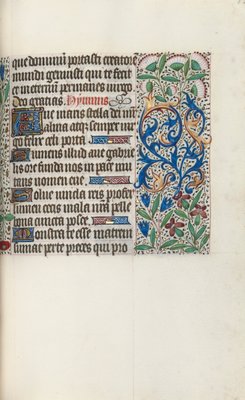 que dominum portasti creatorem
mundi genuisti qui te fecit
et in eternum permanes virgo
deo gratias. Hymnus
Aue maris stella dei ma
alma atqz semper uirgo
felix celi porta
Sumens illud aue gabrie
lis ore funda nos in pace mu
tans nomen eue
Solue uincla reis profer
lumen cecis mala nostra pelle
bona cuncta posce.
Monstra te esse matrem
sumat per te preces qui pro